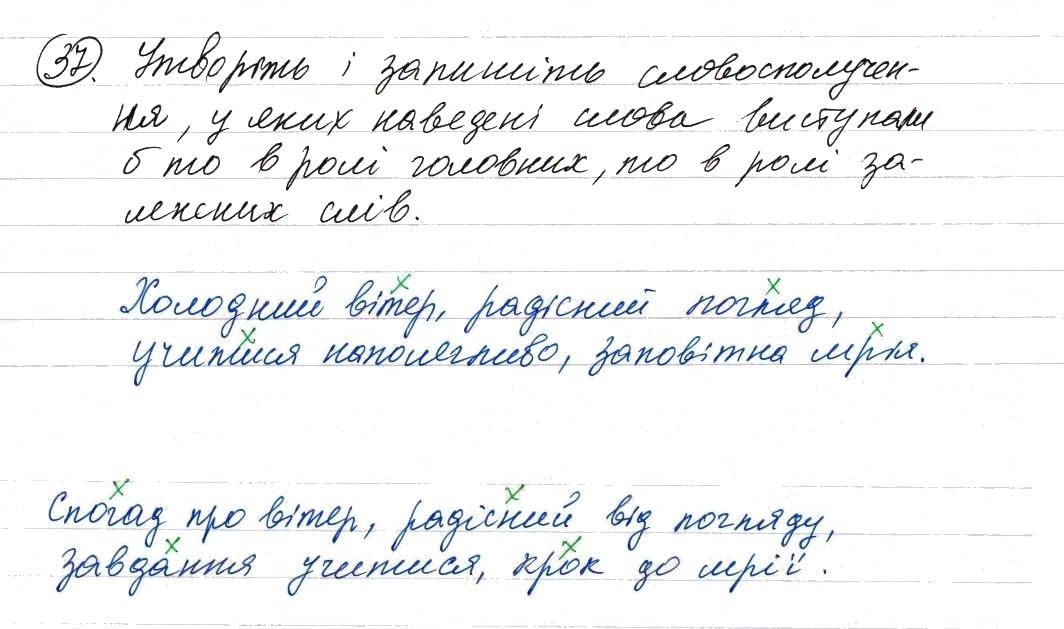 37. Утворіть і запишіть словосполучен-
ня, у яких наведені слова виступали
б то в ролі головних, то в ролі за-
лежних слів.
х х
Холодний вітер, радісний погляд,
х х
учитися наполегливо, заповітна мрія.
х х
Спогад про вітер, радісний від погляду,
х х
завдання учитися, крок до мрії.